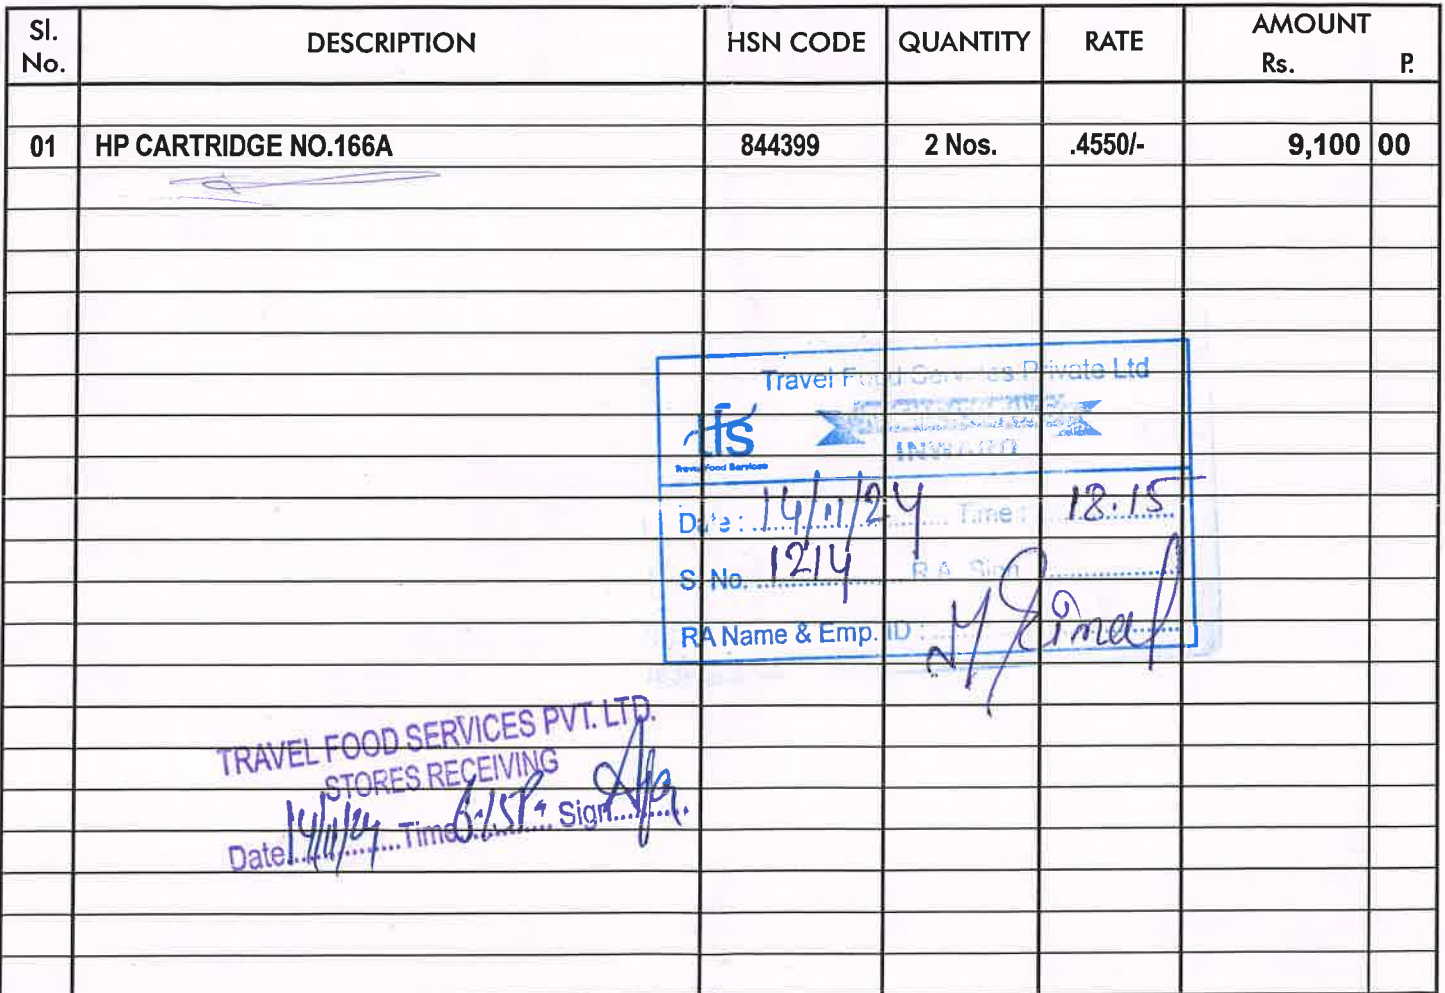 Sl. No. DESCRIPTION HSN CODE QUANTITY RATE AMOUNT Rs. P.
01 HP CARTRIDGE NO.166A 844399 2 Nos. .4550/- 9,100 00
Travel Food Services Private Ltd
tfs
Travel Food Services
INWARD
Date : 14/11/24 Time : 18.15
S. No. 1214 R.A. Sign
RA Name & Emp. ID :
TRAVEL FOOD SERVICES PVT. LTD.
STORES RECEIVING
Date 14/11/24 Time 6:15P Sign